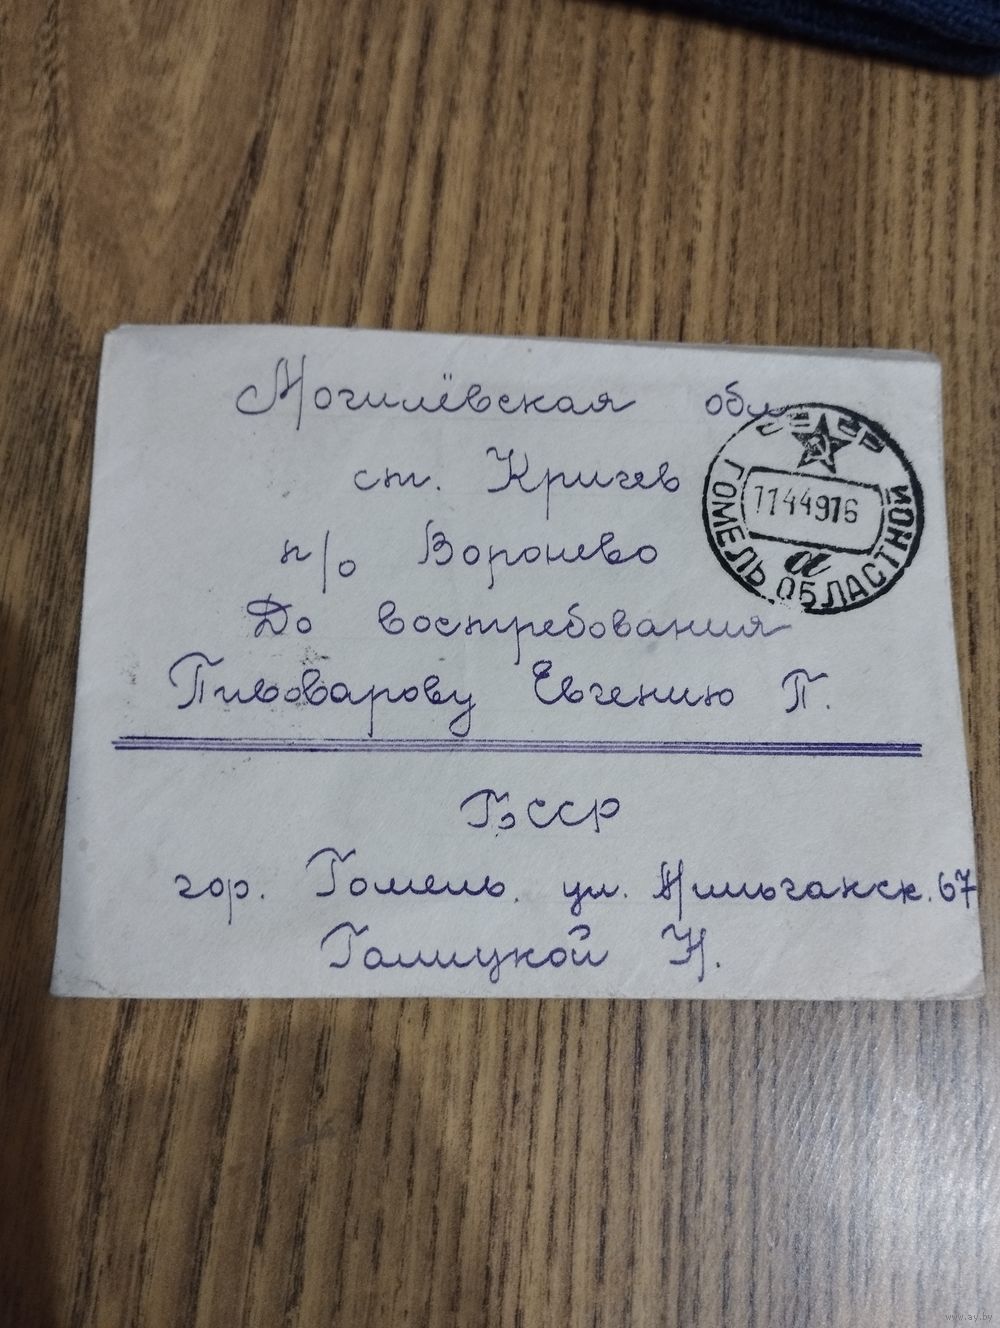 Могилёвская обл.
ст. Кричев
п/о Воронево
До востребования
Пивоварову Евгению П.
СССР
ГОМЕЛЬ ОБЛАСТНОЙ
1144916
а
БССР
гор. Гомель, ул. 67
Галицкой Н.
www.ay.by